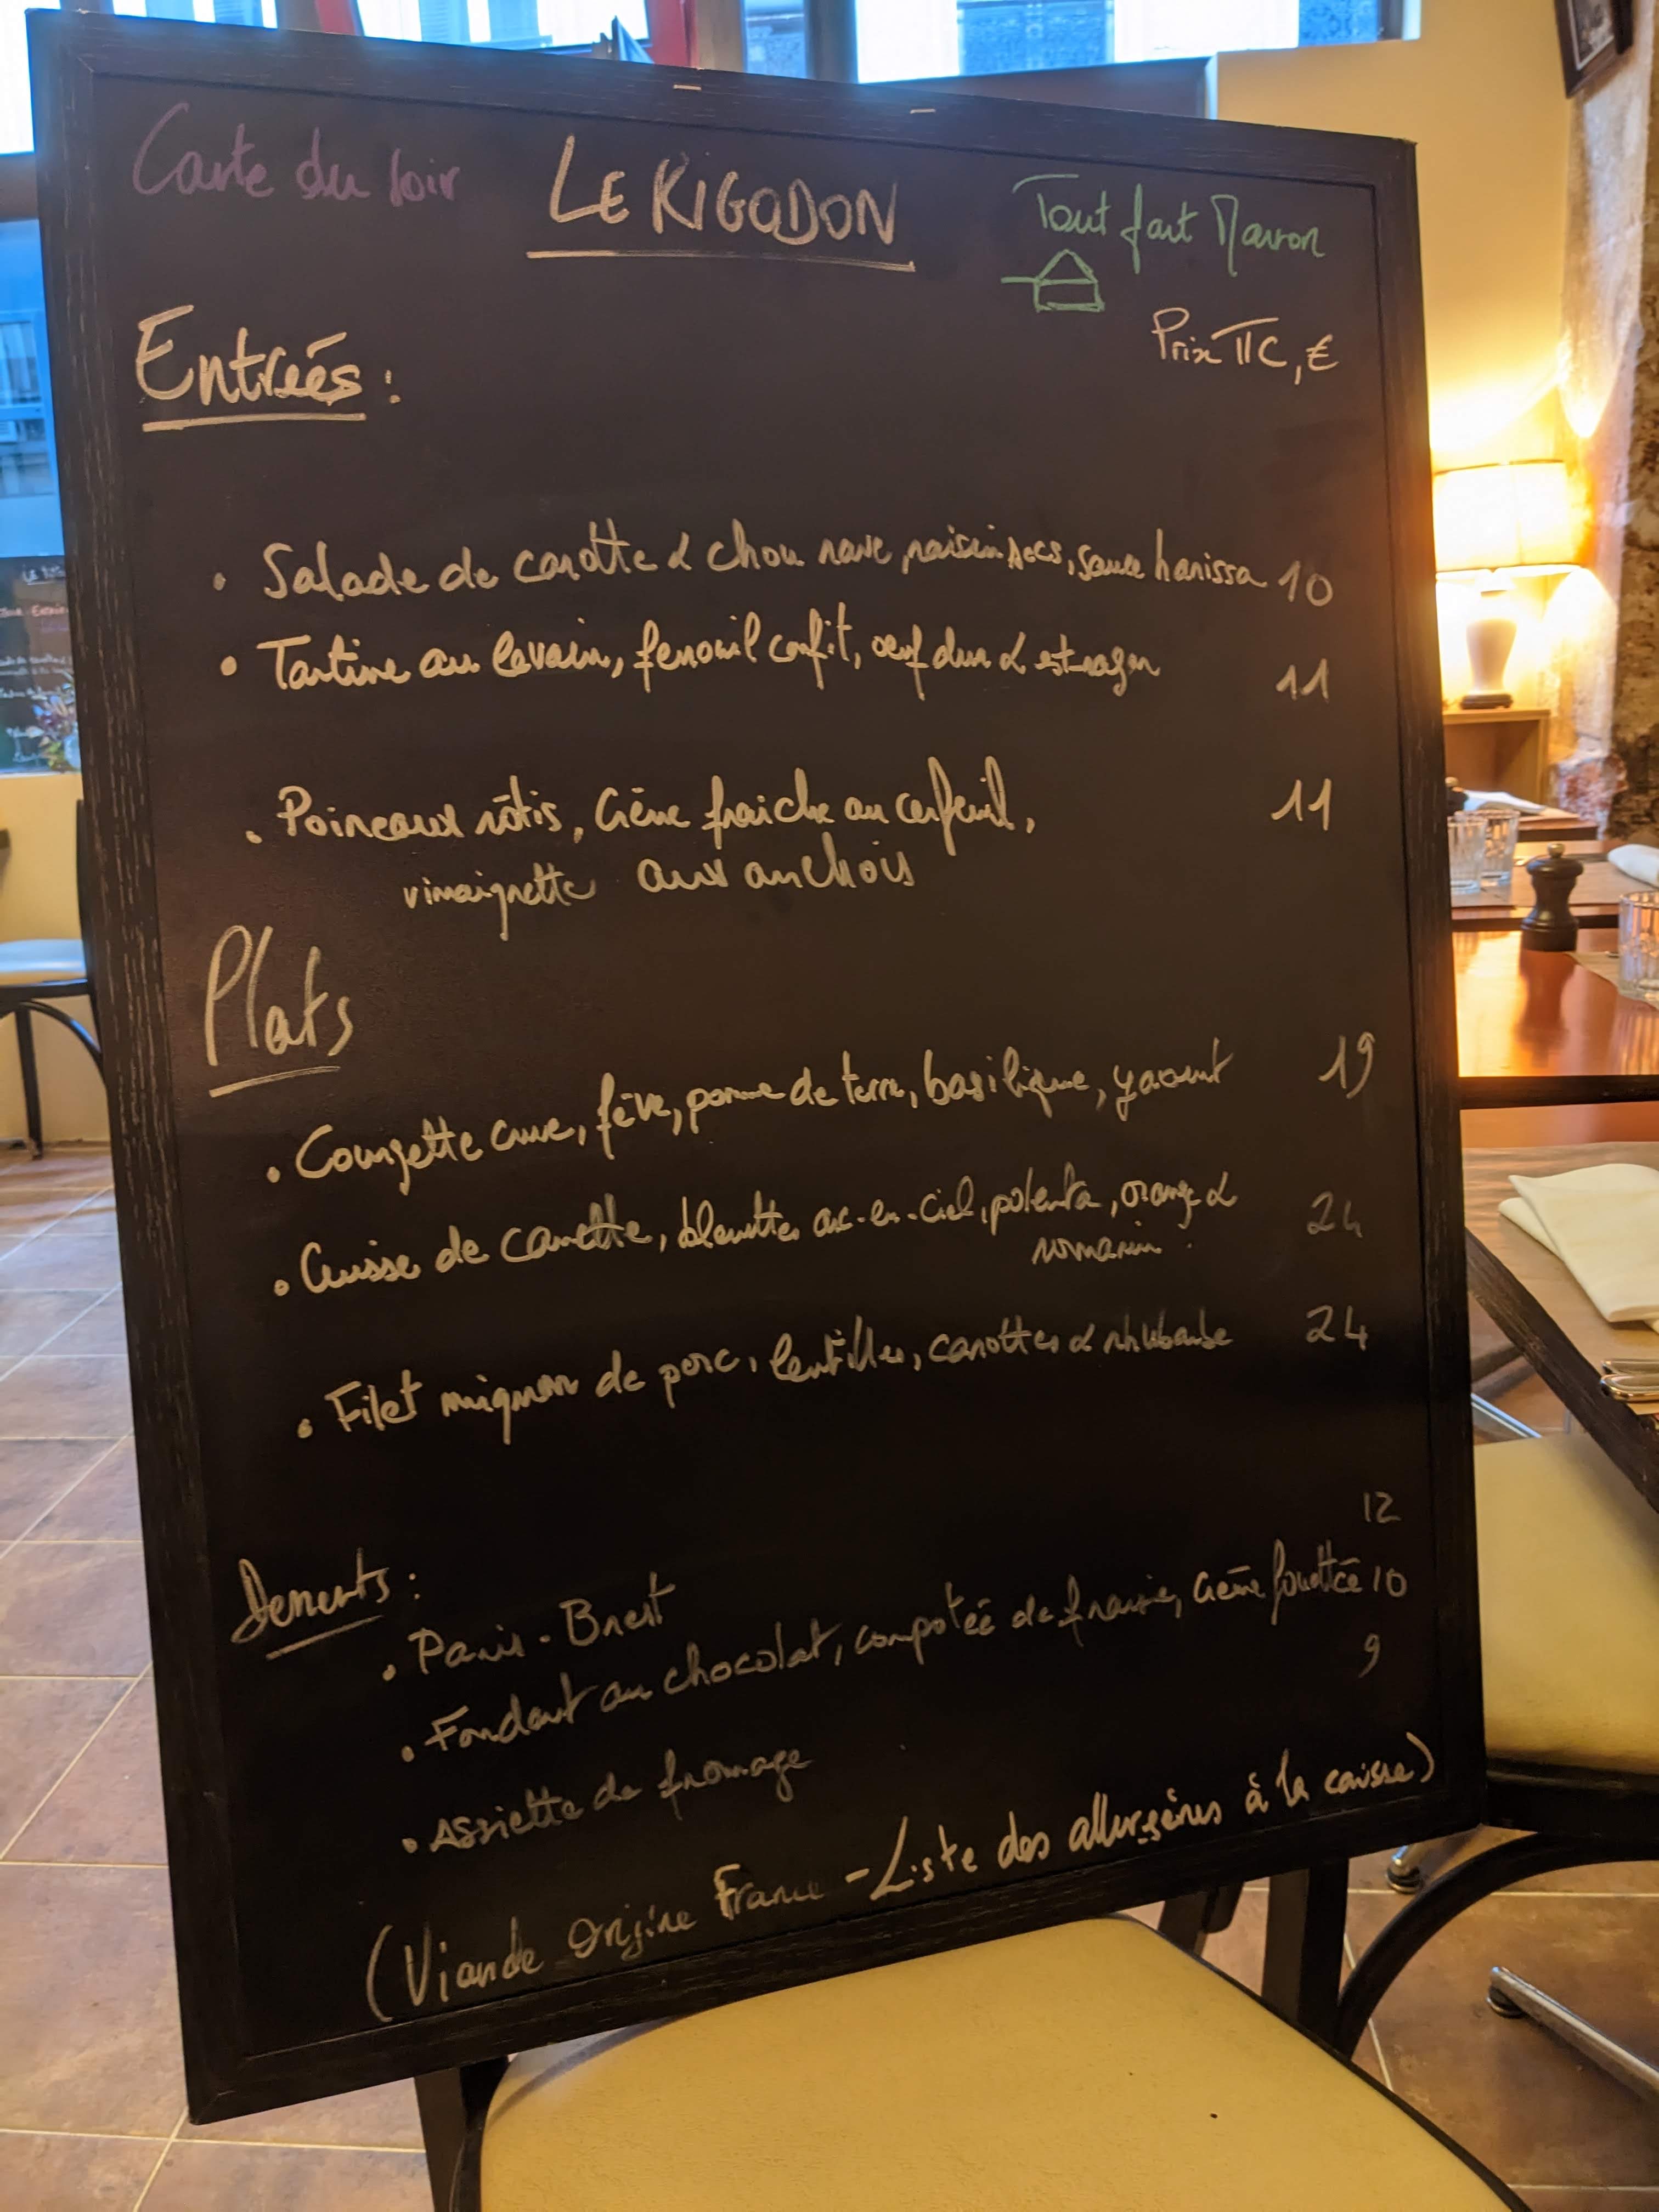 Carte du soir
LE RIGODON
Tout fait Maison
Prix TTC, €
Entrées :
• Salade de carotte & chou rave, raisin secs, sauce harissa 10
• Tartine au levain, fenouil confit, oeuf dur & estragon 11
• Poireaux rôtis, Crème fraiche au cerfeuil, 11
vinaigrette aux anchois
Plats
• Courgette crue, fève, pomme de terre, basilique, yaourt 19
• Cuisse de canette, blettes arc-en-ciel, polenta, orange & 24
romarin.
• Filet mignon de porc, lentilles, carottes & rhubarbe 24
Desserts :
• Paris-Brest 12
• Fondant au chocolat, compotée de fraise, crème fouettée 10
• Assiette de fromage 9
(Viande Origine France - Liste des allergènes à la caisse)